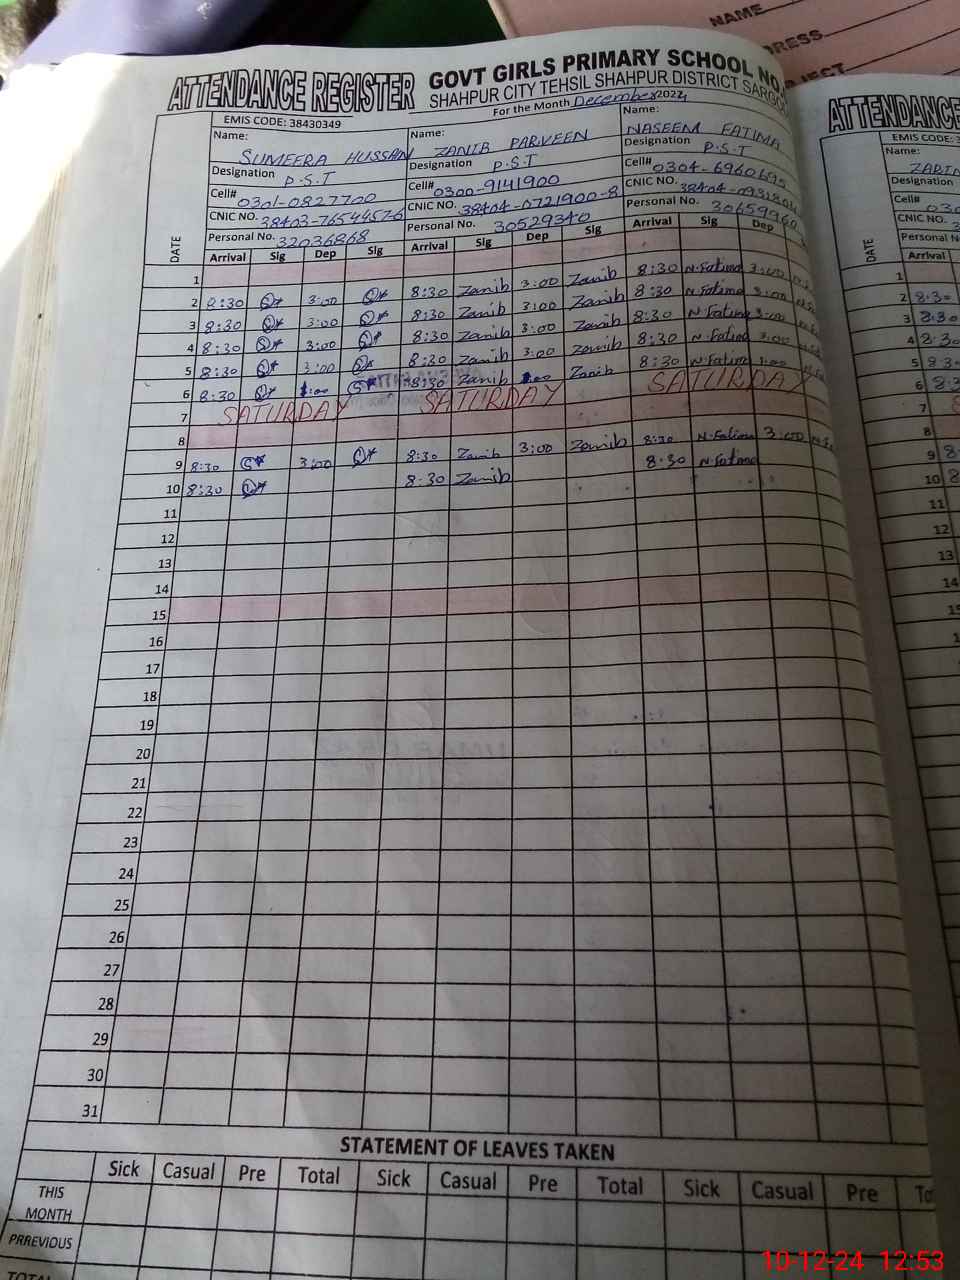 NAME
RESS
JECT
ATTENDANCE REGISTER GOVT GIRLS PRIMARY SCHOOL NO.
SHAHPUR CITY TEHSIL SHAHPUR DISTRICT SARGO
EMIS CODE: 38430349 For the Month December 2024
Name: SUMEERA HUSSAN Name: ZANIB PARVEEN Name: NASEEM FATIMA
Designation P.S.T Designation P.S.T Designation P.S.T
Cell# 0301-0827700 Cell# 0300-9141900 Cell# 0304-6960695
CNIC NO. CNIC NO. 38404-0721900-8 CNIC NO.
Personal No. 32036868 Personal No. 30529340 Personal No.
DATE Arrival Sig Dep Sig Arrival Sig Dep Sig Arrival Sig Dep
1
2 8:30 3:00 8:30 Zanib 3:00 Zanib 8:30 N.Fatima 3:00
3 8:30 3:00 8:30 Zanib 3:00 Zanib 8:30 N.Fatima 3:00
4 8:30 3:00 8:30 Zanib 3:00 Zanib 8:30 N.Fatima 3:00
5 8:30 3:00 8:30 Zanib 3:00 Zanib 8:30 N.Fatima 3:00
6 8:30 1:00 8:30 Zanib 1:00 Zanib 8:30 N.Fatima 1:00
7 SATURDAY SATURDAY SATURDAY
8
9 8:30 3:00 8:30 Zanib 3:00 Zanib 8:30 N.Fatima 3:00
10 8:30 8:30 Zanib 8:30 N.Fatima
11
12
13
14
15
16
17
18
19
20
21
22
23
24
25
26
27
28
29
30
31
STATEMENT OF LEAVES TAKEN
Sick Casual Pre Total Sick Casual Pre Total Sick Casual Pre
THIS
MONTH
PRREVIOUS
TOTAL
ATTENDANCE
EMIS CODE: 3
Name:
Designation
Cell# 030
CNIC NO.
Personal N
DATE Arrival
1
2 8:30
3 8:30
4 8:30
5 8:3
6 8:3
7
8
9 8
10 8
11
12
13
14
10-12-24 12:53